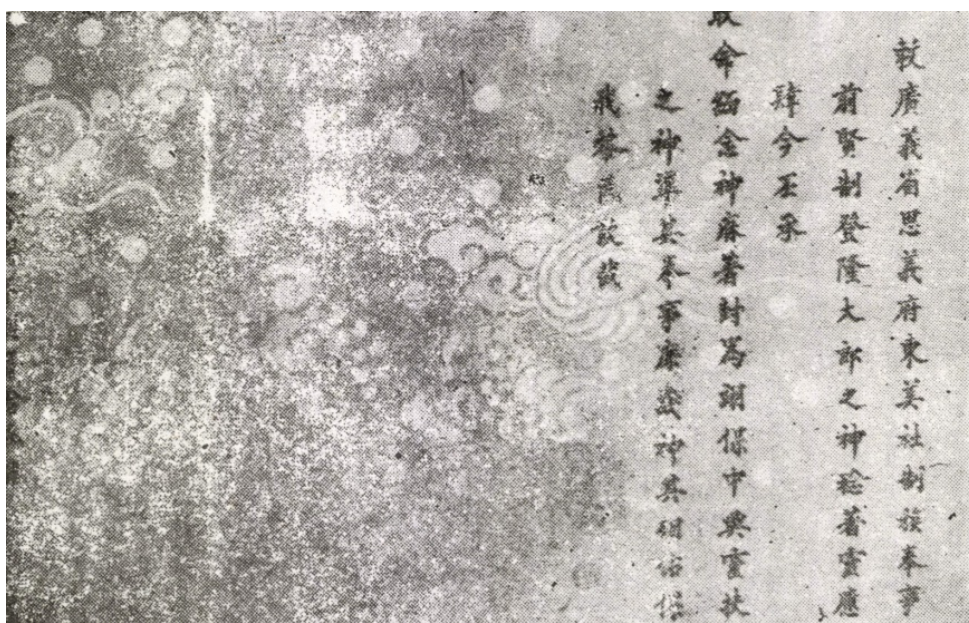 敕廣義省思義府東美社制族奉事
前賢制登隆大郎之神稔著靈應
肆今丕承
耿命緬念神庥著封為翊保中興靈扶
之神準其奉事庶幾神其相佑保
我黎民欽哉